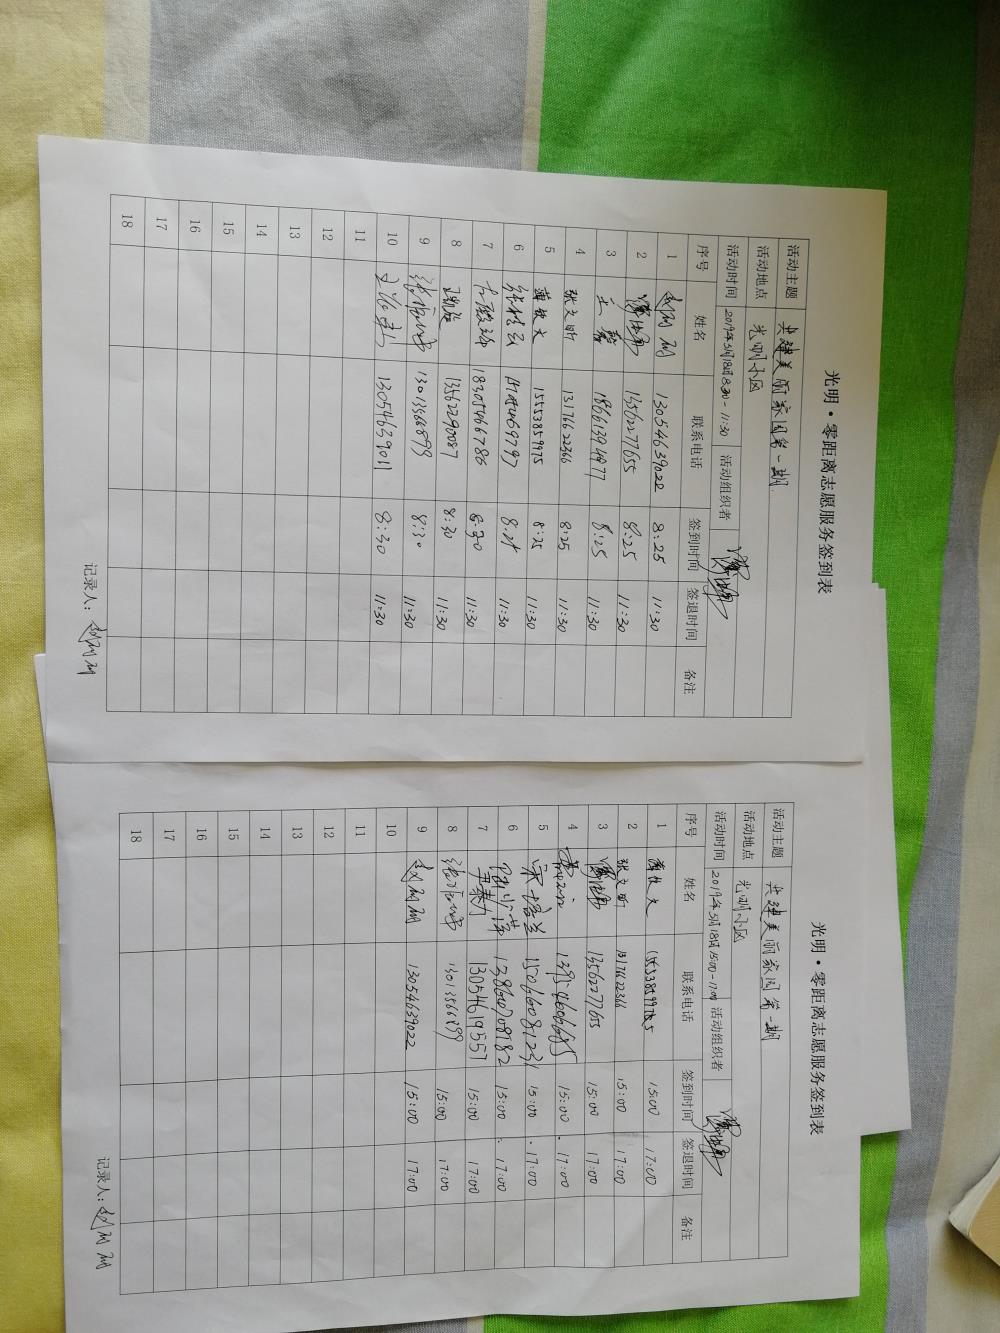 光明·零距离志愿服务签到表
活动主题 共建美丽家园第一期
活动地点 光明小区
活动时间 2019年5月18日8:30-11:30 活动组织者
序号 姓名 联系电话 签到时间 签退时间 备注
1 13054639022 8:25 11:30
2 13562277655 8:25 11:30
3 王 18661394977 8:25 11:30
4 张文昕 13176622366 8:25 11:30
5 薄牧文 15553859975 8:25 11:30
6 11:30
7 18305466786 8:30 11:30
8 13562290087 8:30 11:30
9 13013566899 8:30 11:30
10 13054639011 8:30 11:30
11
12
13
14
15
16
17
18
记录人：
光明·零距离志愿服务签到表
活动主题 共建美丽家园第一期
活动地点 光明小区
活动时间 2019年5月18日15:00-17:00 活动组织者
序号 姓名 联系电话 签到时间 签退时间 备注
1 薄牧文 15:00 17:00
2 张文昕 13176622366 15:00 17:00
3 13562277655 15:00 17:00
4 15:00 17:00
5 15066081231 15:00 17:00
6 13860708782 15:00 17:00
7 13054619557 15:00 17:00
8 13013566899 15:00 17:00
9 13054639022 15:00 17:00
10
11
12
13
14
15
16
17
18
记录人：